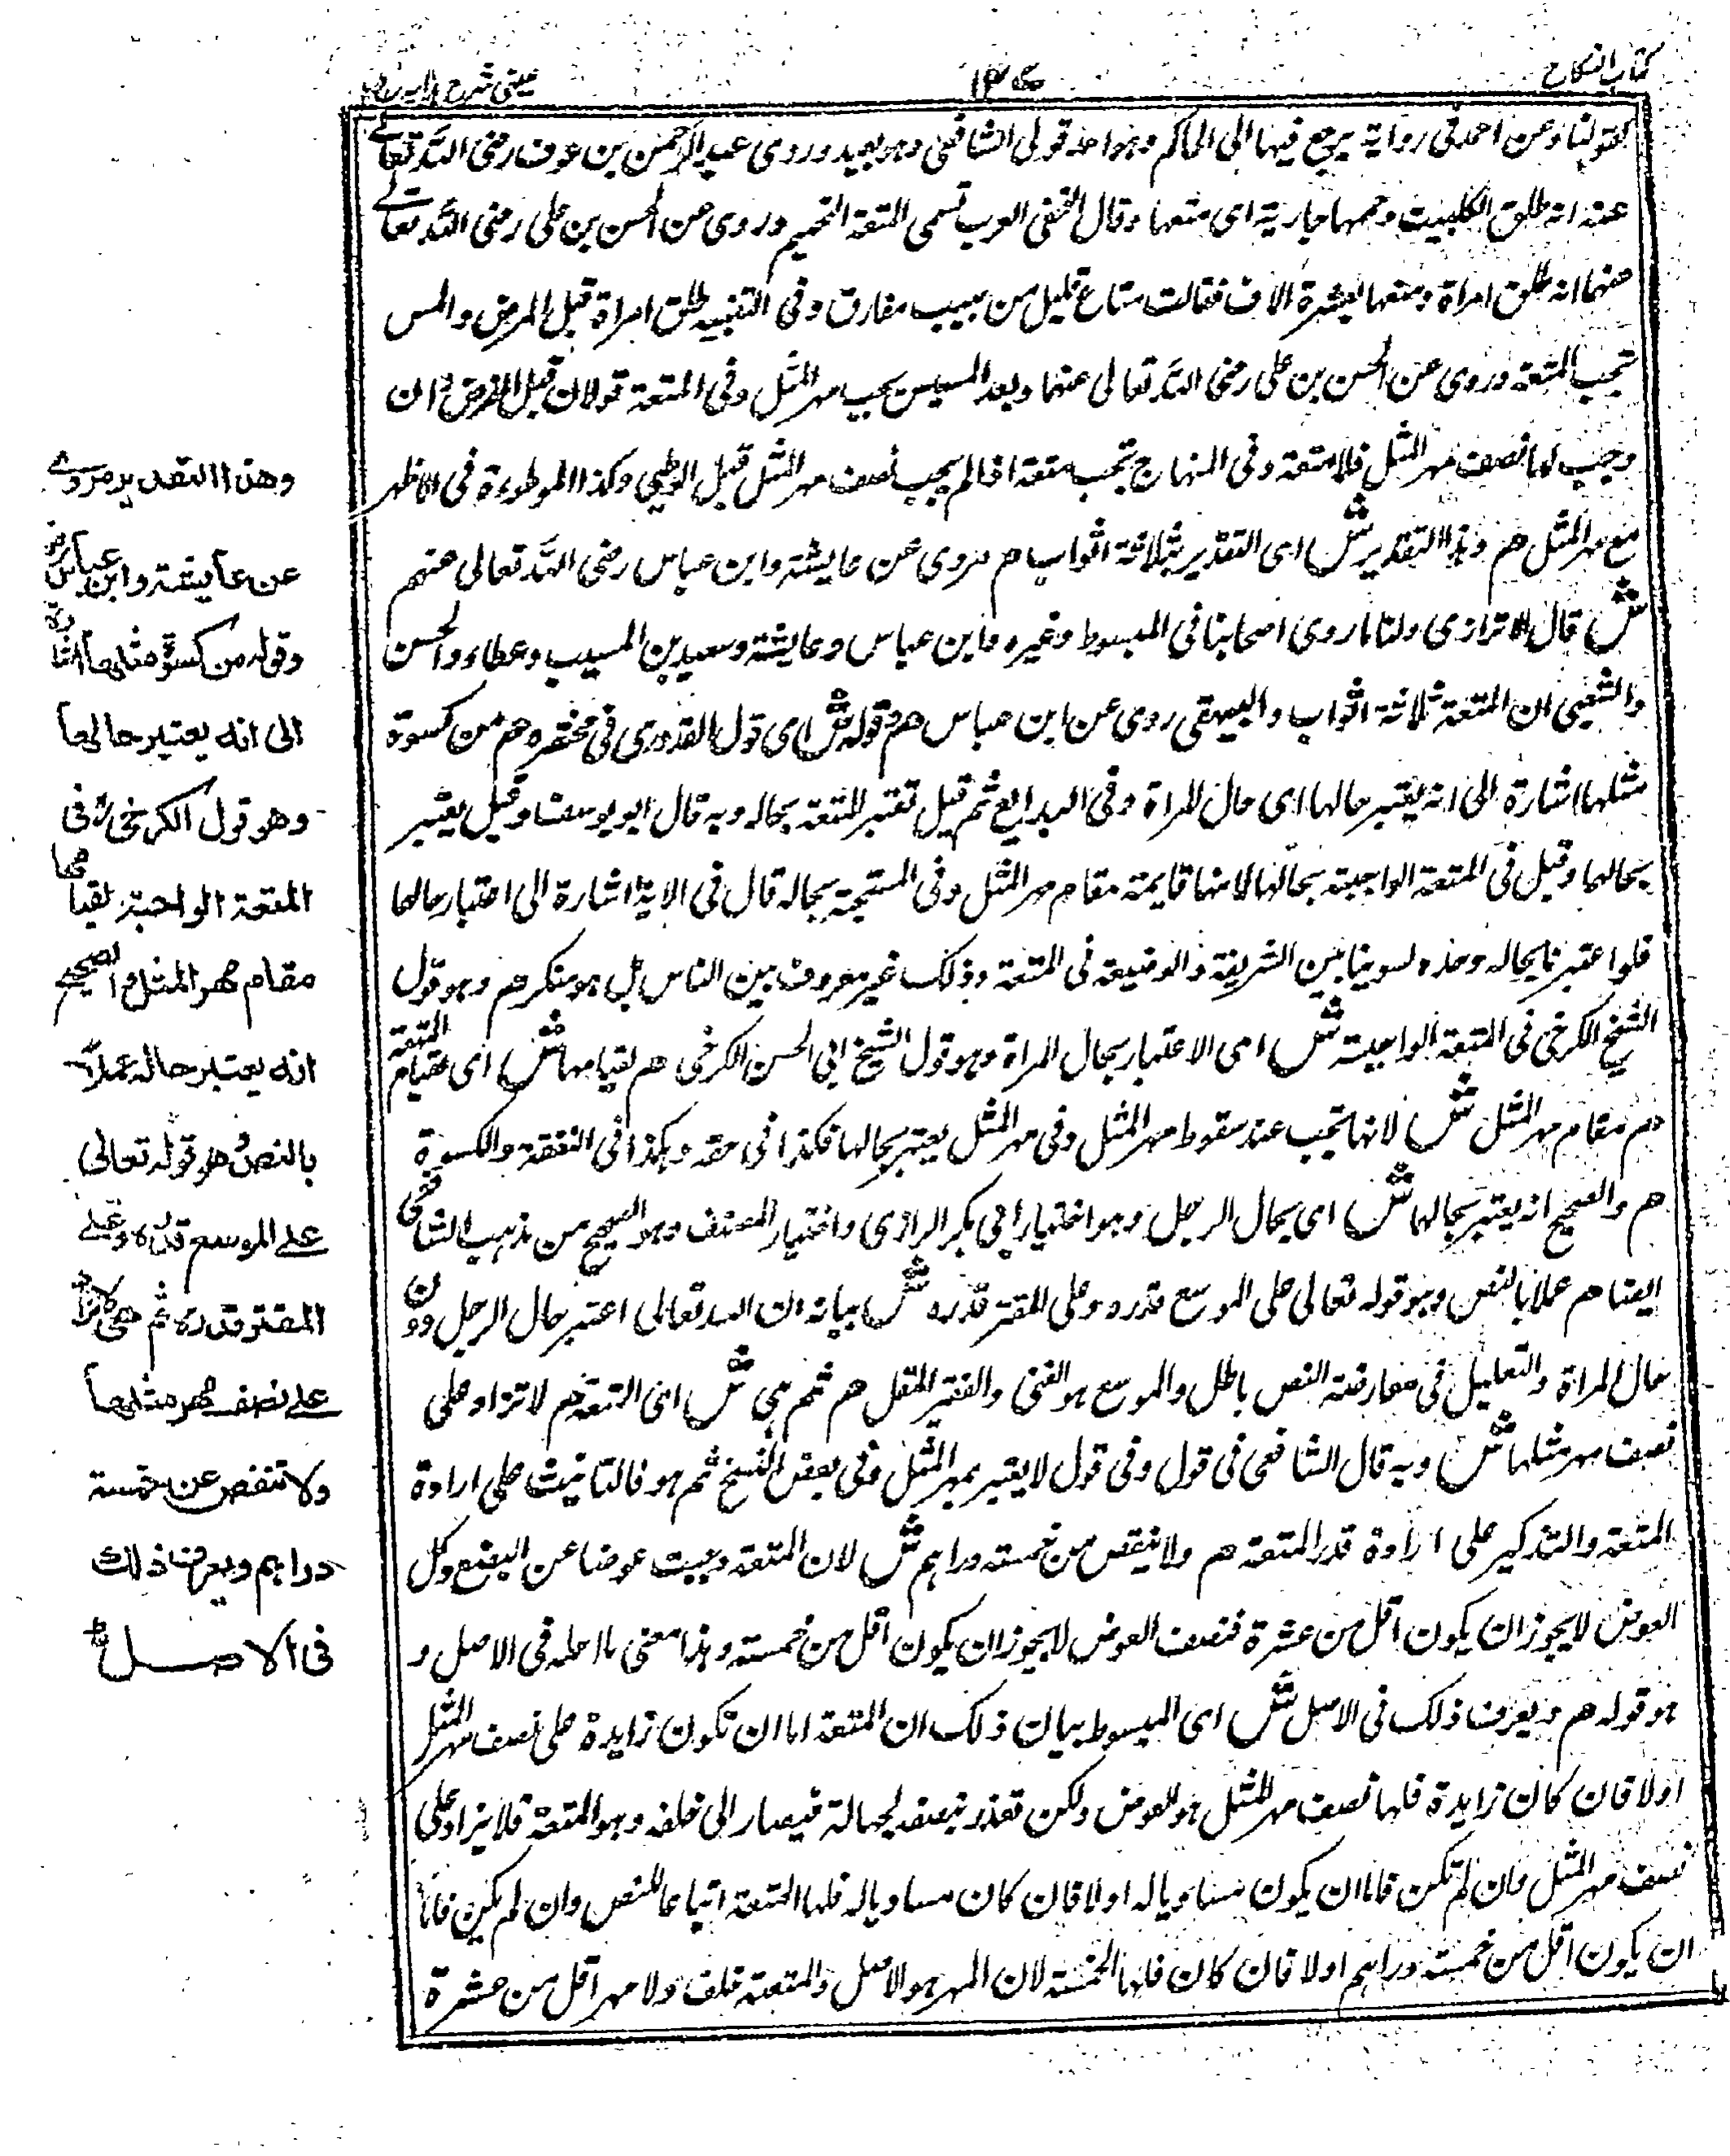 كتاب النكاح
عينى شرح
كقولنا وعن احمد فى رواية يرجع فيها الى الحاكم وهو احد قولى الشافعى وهو بعيد وروى عبد الرحمن بن عوف رضى الله تعالے
عنه انه طلق الكلبية وحممها جارية اى متعها وقال النخعى العرب تسمى المتعة التحميم وروى عن الحسن بن على رضى الله تعالے
عنهما انه طلق امراة ومتعها بعشرة الاف فقالت متاع قليل من حبيب مفارق وفى طلق امراة قبل الفرض والمس
تجب المتعة وروى عن الحسن بن على رضى الله تعالى عنهما وبعد المسيس يجب مهر المثل وفى المتعة قولان قبل الفرض ان
وجب لها نصف مهر المثل فلا متعة وفى المنهاج تجب متعة اذا لم يجب نصف مهر المثل قبل الوطى وكذا الموطوءة فى الاظهر
مع مهر المثل هم وهذا التقدير ش اى التقدير بثلاثة اثواب م مروى عن عايشة وابن عباس رضى الله تعالى عنهم
ش قال الاترازى ولنا ما روى اصحابنا فى المبسوط وغيره وابن عباس وعايشة وسعيد بن المسيب وعطاء والحسن
والشعبى ان المتعة ثلاثة اثواب والبيهقى روى عن ابن عباس هم وقوله ش اى قول القدورى فى مختصره هم من كسوة
مثلها اشارة الى انه يعتبر حالها اى حال المراة وفى البدايع ثم قيل تعتبر المتعة بحاله وبه قال ابو يوسف وقيل يعتبر
بحالهما وقيل فى المتعة الواجبة بحالها لانها قايمة مقام مهر المثل وفى المستحبة بحاله قال فى الاية اشارة الى اعتبار حالها
فلو اعتبرنا بحاله وحده لسوينا بين الشريفة والوضيعة فى المتعة وذلك غير معروف بين الناس بل هو منكر هم وهو قول
الشيخ الكرخى فى المتعة الواجبة ش اى الاعتبار بحال المراة وهو قول الشيخ ابى الحسن الكرخى هم لقيامها ش اى لقيام المتعة
هم مقام مهر المثل ش لانها تجب عند سقوط مهر المثل وفى مهر المثل يعتبر بحالها فكذا فى حقه وهكذا فى النفقة والكسوة
هم والصحيح انه يعتبر بحالها ش اى بحال الرجل وهو اختيار ابى بكر الرازى واختيار المصنف وهو الصحيح من مذهب الشافعى
ايضا هم عملا بالنص وهو قوله تعالى على الموسع قدره وعلى المقتر قدره ش بيانه ان الله تعالى اعتبر حال الرجل دون
حال المراة والتعليل فى معارضة النص باطل والموسع هو الغنى والفقير المقل هم ثم هى ش اى المتعة هم لا تزاد على
نصف مهر مثلها ش وبه قال الشافعى فى قول وفى قول لا يعتبر بمهر المثل وفى بعض النسخ ثم هو فالتانيث على ارادة
المتعة والتذكير على ارادة قدر المتعة هم ولا ينقص من خمسة دراهم ش لان المتعة وجبت عوضا عن البضع وكل
العوض لا يجوز ان يكون اقل من عشرة فنصف العوض لا يجوز ان يكون اقل من خمسة وهذا معنى ما احله فى الاصل و
هو قوله هم ويعرف ذلك فى الاصل ش اى المبسوط بيان ذلك ان المتعة اما ان تكون زايدة على نصف مهر المثل
اولا فان كان زايدة فلها نصف مهر المثل هو العوض ولكن تعذر تنصيفه لجهالة فيصار الى خلفه وهو المتعة فلا يزاد على
نصف مهر المثل وان لم تكن فاما ان يكون مساويا له اولا فان كان مساويا له فلها المتعة اتباعا للنص وان لم يكن فاما
ان يكون اقل من خمسة دراهم اولا فان كان فلها الخمسة لان المهر هو الاصل والمتعة خلف ولا مهر اقل من عشرة
وهذا التقدير مروے
عن عايشة وابن عباس رض
وقوله من كسوة مثلها اشارة
الى انه يعتبر حالها
وهو قول الكرخى رح فى
المتعة الواجبة لقيامها
مقام مهر المثل والصحيح
انه يعتبر حاله عملا
بالنص هو قوله تعالى
علے الموسع قدره وعلے
المقتر قدره ثم هى لا تزاد
علے نصف مهر مثلها
ولا تنقص عن خمسة
دراهم ويعرف ذلك
فى الاصــل